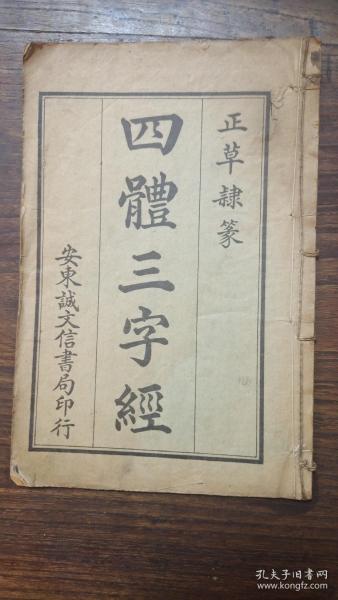 正草隸篆
四體三字經
安東誠文信書局印行
孔夫子旧书网
www.kongfz.com